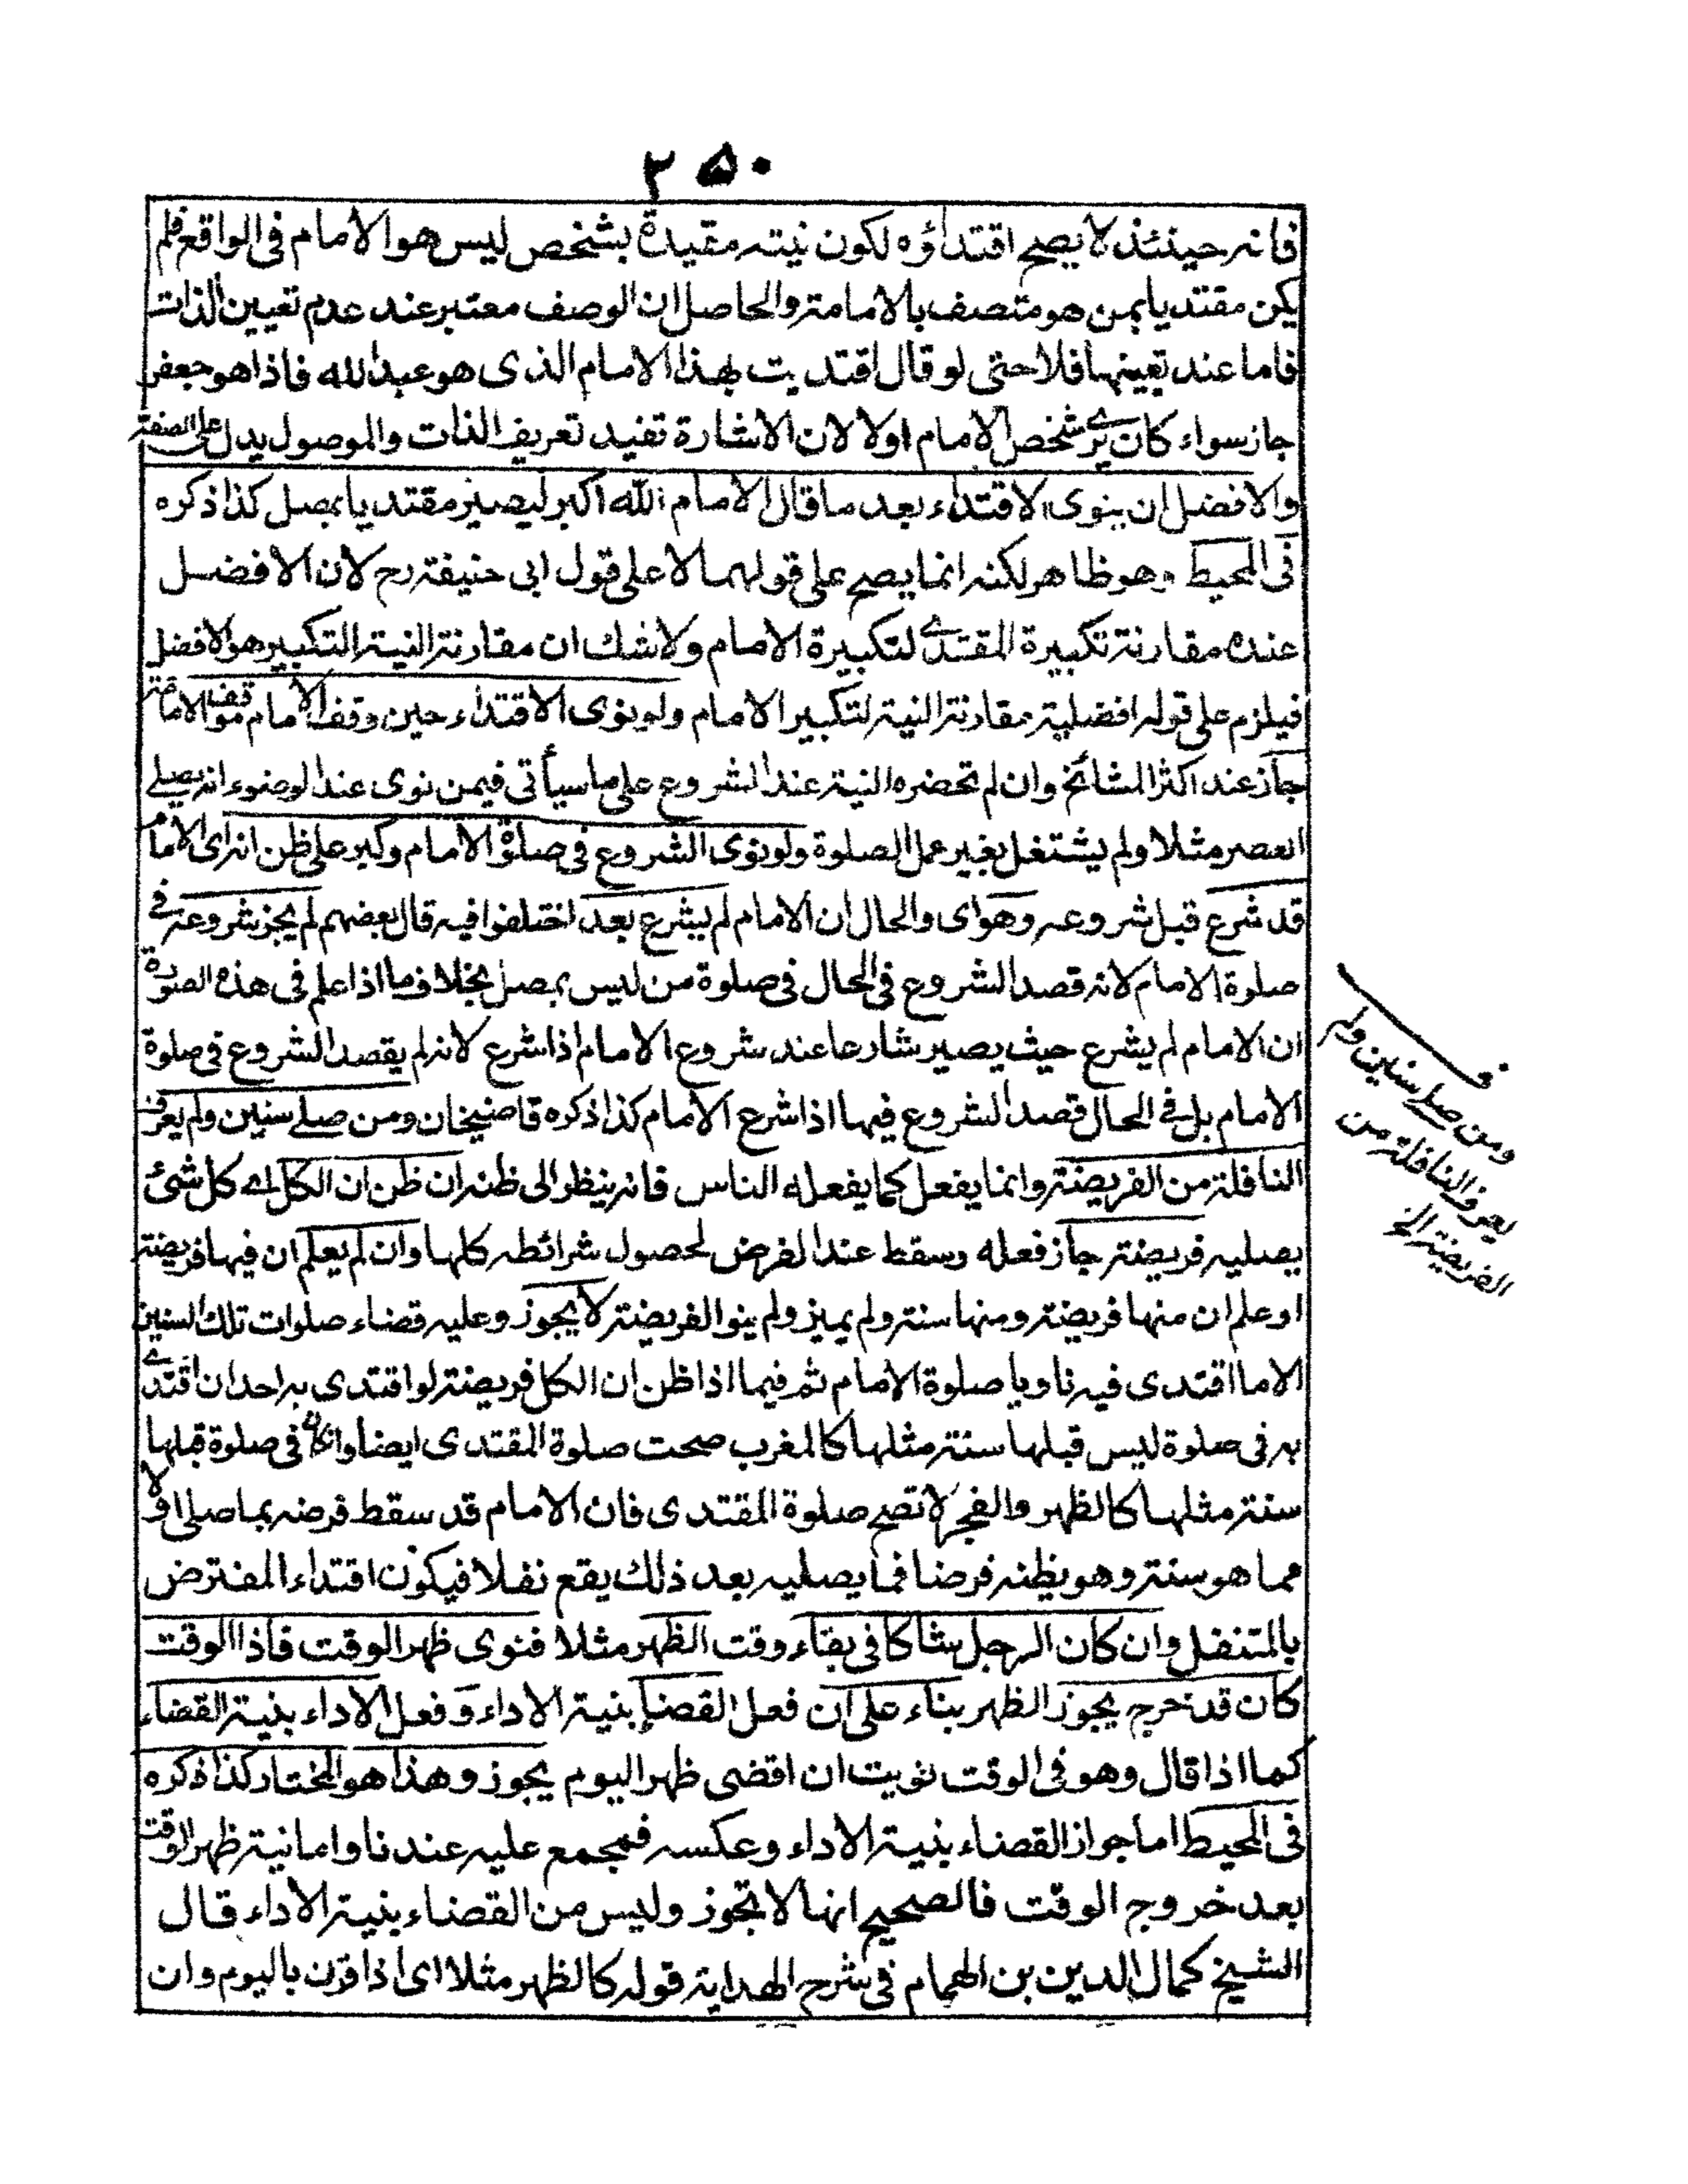 ٢٥٠
فانه حينئذ لا يصح اقتداؤه لكون نيته مقيدة بشخص ليس هو الامام فى الواقع فلم
يكن مقتديا بمن هو متصف بالامامة والحاصل ان الوصف معتبر عند عدم تعيين الذات
فاما عند تعيينها فلا حتى لو قال اقتديت بهذا الامام الذى هو عبد الله فاذا هو جعفر
جاز سواء كان يرے شخص الامام اولا لان الاشارة تفيد تعريف الذات والموصول يدل على الصفة
والافضل ان ينوى الاقتداء بعد ما قال الامام الله اكبر ليصير مقتديا بمصل كذا ذكره
فى المحيط وهو ظاهر لكنه انما يصح على قولهما لا على قول ابى حنيفة رح لان الافضل
عنده مقارنة تكبيرة المقتدے لتكبيرة الامام ولا شك ان مقارنة النية التكبير هو الافضل
فيلزم على قوله افضلية مقارنة النية لتكبير الامام ولو نوى الاقتداء حين وقف الامام موقف الامامة
جاز عند اكثر المشائخ وان لم تحضره النية عند الشروع على ما سيأتى فيمن نوى عند الوضوء انه يصلے
العصر مثلا ولم يشتغل بغير عمل الصلوة ولو نوى الشروع فى صلوة الامام وكبر على ظن انه اى الامام
قد شرع قبل شروعه وهو اى والحال ان الامام لم يشرع بعد اختلفوا فيه قال بعضهم لم يجز شروعه فے
صلوة الامام لانه قصد الشروع فى الحال فى صلوة من ليس بمصل بخلاف ما اذا علم فى هذه الصورة
ان الامام لم يشرع حيث يصير شارعا عند شروع الامام اذا شرع لانه لم يقصد الشروع فى صلوة
الامام بل فے الحال قصد الشروع فيها اذا شرع الامام كذا ذكره قاضيخان ومن صلے سنين ولم يعرف
النافلة من الفريضة وانما يفعل كما يفعله الناس فانه ينظر الى ظنه ان ظن ان الكل اے كل شئ
يصليه فريضة جاز فعله وسقط عنه الفرض لحصول شرائطه كلها وان لم يعلم ان فيها فريضة
او علم ان منها فريضة ومنها سنة ولم يميز ولم ينو الفريضة لا يجوز وعليه قضاء صلوات تلك السنين
الا ما اقتدى فيه ناويا صلوة الامام ثم فيما اذا ظن ان الكل فريضة لو اقتدى به احد ان اقتدے
به فى صلوة ليس قبلها سنة مثلها كالمغرب صحت صلوة المقتدى ايضا وان كان فى صلوة قبلها
سنة مثلها كالظهر والفجر لا تصح صلوة المقتدى فان الامام قد سقط فرضه بما صلى اولا
مما هو سنة وهو يظنه فرضا فما يصليه بعد ذلك يقع نفلا فيكون اقتداء المفترض
بالمتنفل وان كان الرجل شاكا فى بقاء وقت الظهر مثلا فنوى ظهر الوقت فاذا الوقت
كان قد خرج يجوز الظهر بناء على ان فعل القضاء بنية الاداء وفعل الاداء بنية القضاء
كما اذا قال وهو فى الوقت نويت ان اقضى ظهر اليوم يجوز وهذا هو المختار كذا ذكره
فى المحيط اما جواز القضاء بنية الاداء وعكسه فمجمع عليه عندنا واما نية ظهر الوقت
بعد خروج الوقت فالصحيح انها لا تجوز وليس من القضاء بنية الاداء قال
الشيخ كمال الدين بن الهمام فى شرح الهداية قوله كالظهر مثلا اى اذا قرن باليوم وان
ومن صلے سنين ولم
يعرف النافلة من
الفريضة الخ